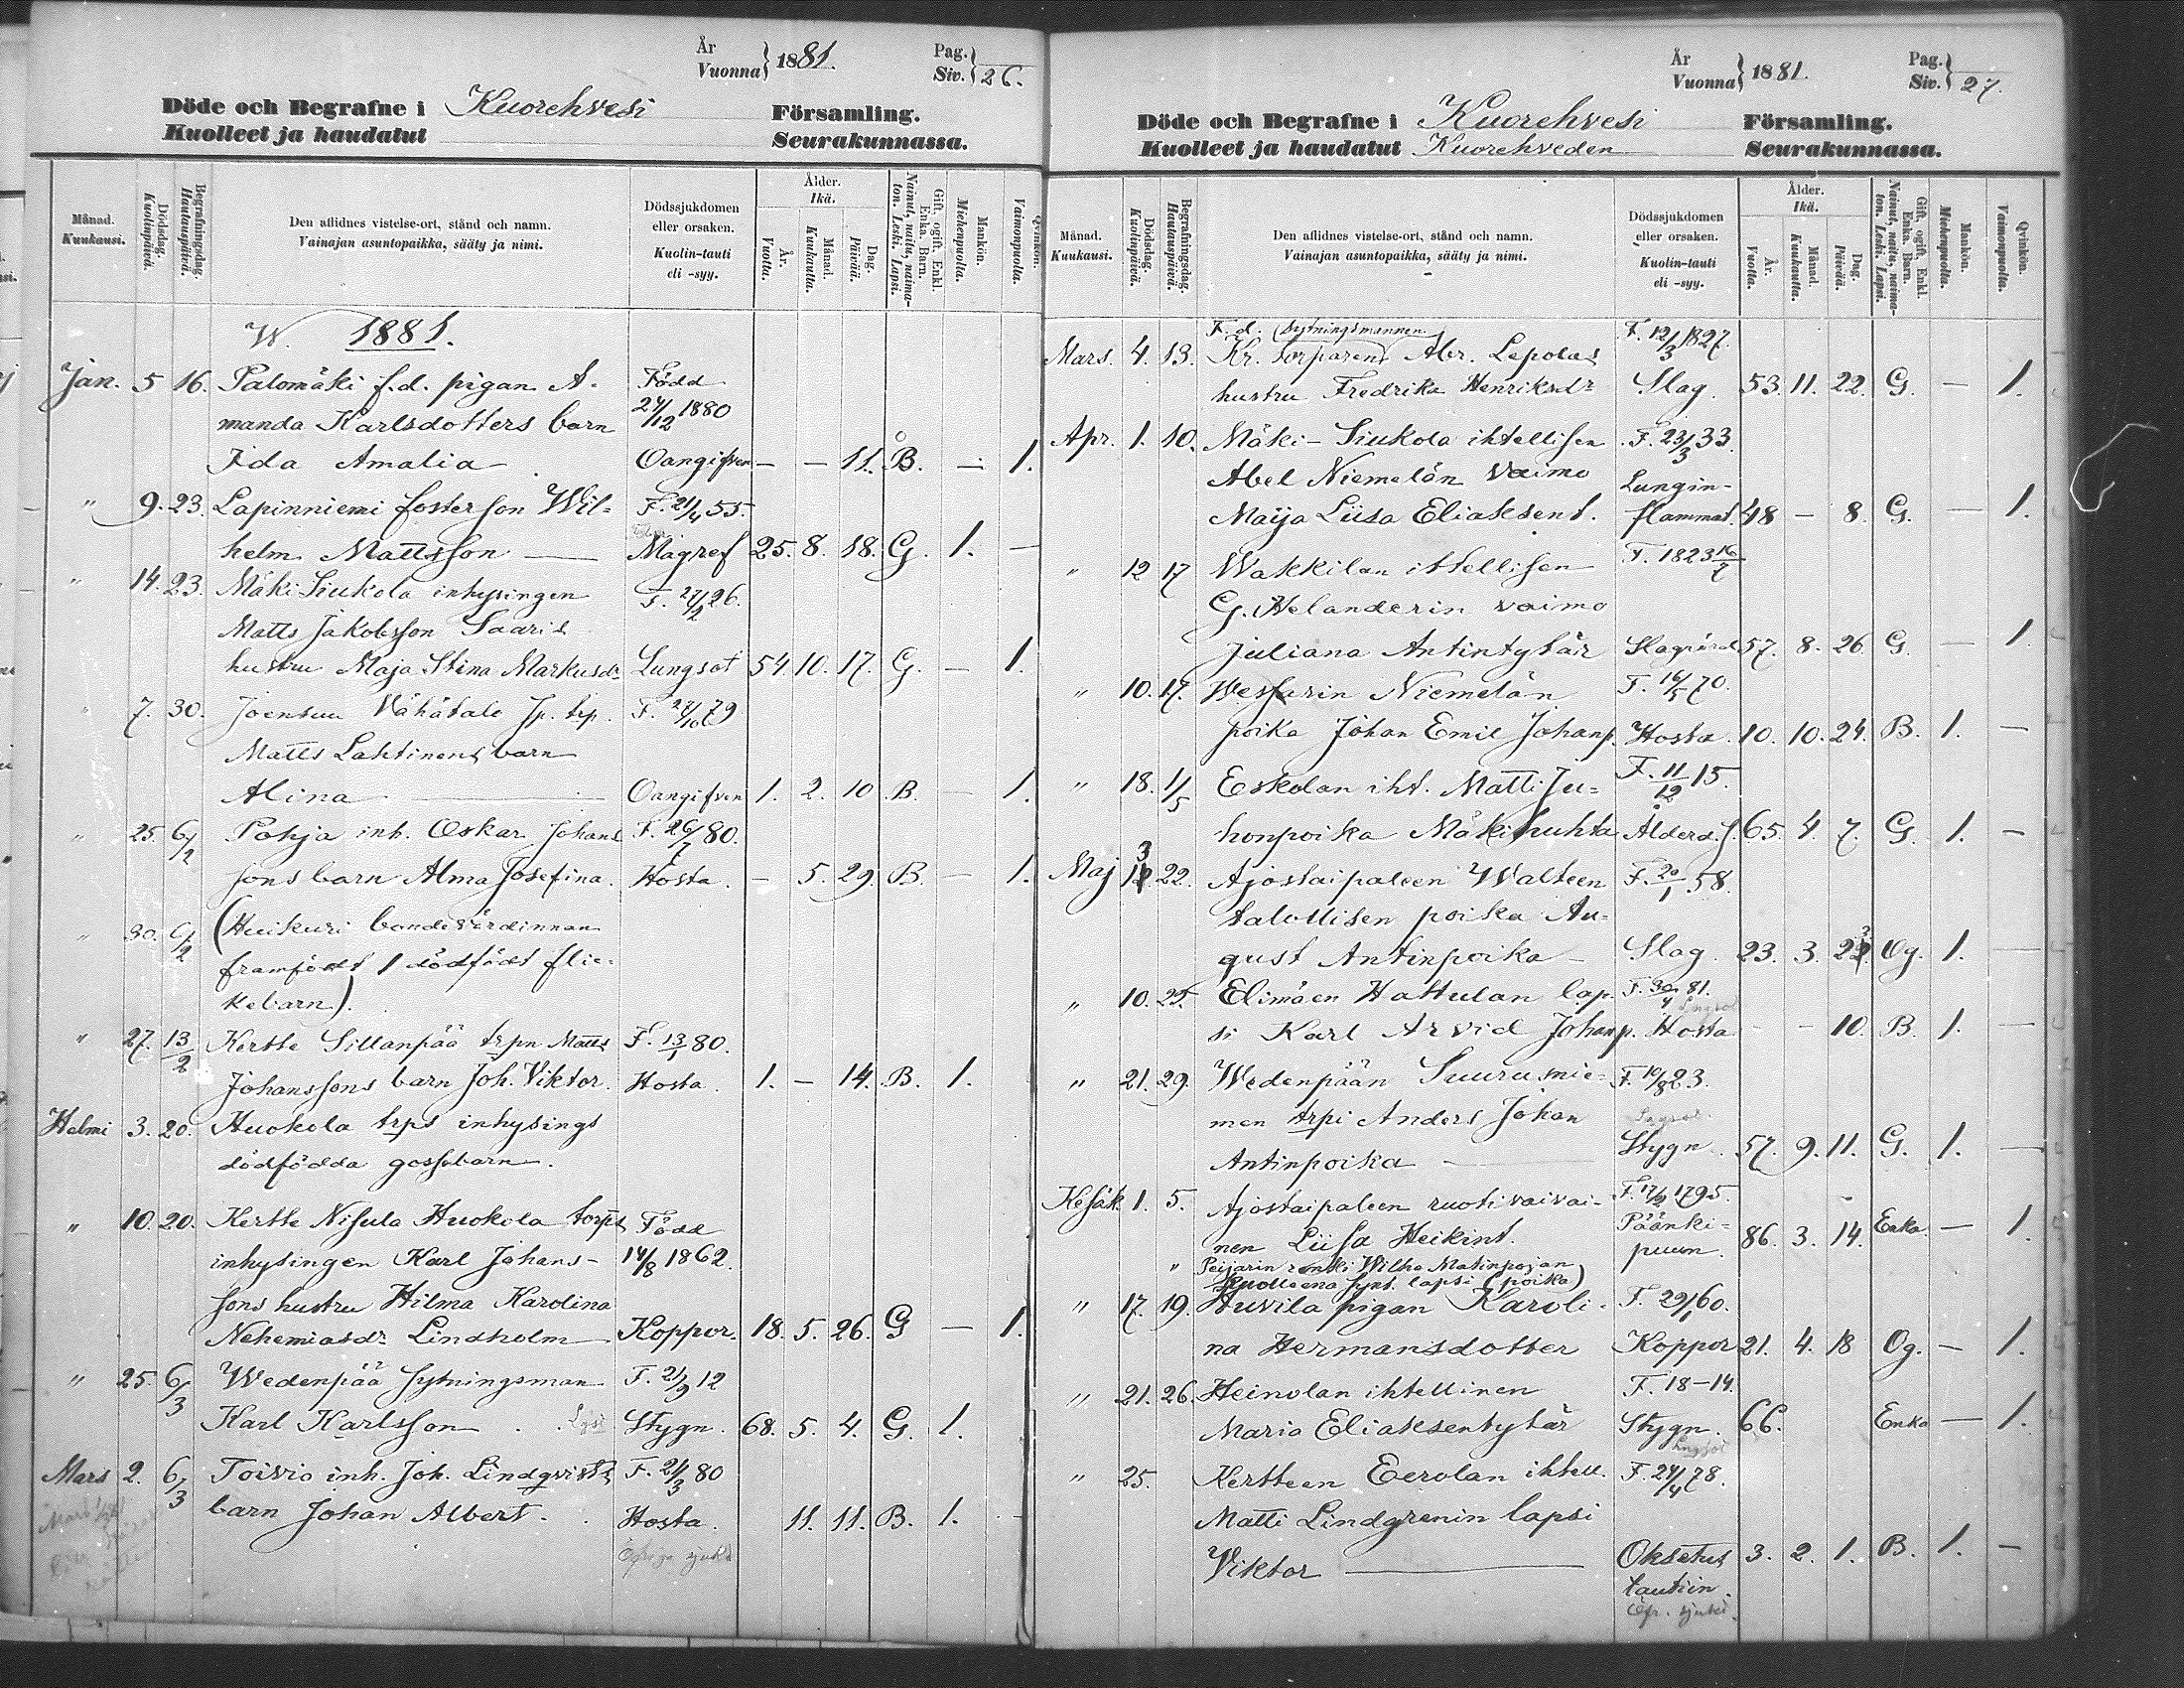 År
Vuonna } 1881.
Pag.
Siv. } 26.
Döde och Begrafne i Kuorehvesi Församling.
Kuolleet ja haudatut Seurakunnassa.
Månad. Kuukausi.
Dödsdag. Kuolinpäivä.
Begrafningsdag. Hautauspäivä.
Den aflidnes vistelse-ort, stånd och namn.
Vainajan asuntopaikka, sääty ja nimi.
Dödssjukdomen eller orsaken.
Kuolin-tauti eli -syy.
Ålder. Ikä.
År. Vuotta.
Månad. Kuukautta.
Dag. Päivää.
Gift, ogift, Enkl. Enka. Barn.
Nainut, naitu, naimaton. Leski. Lapsi.
Mankön. Miehenpuolta.
Qvinkön. Vaimonpuolta.
W. 1881.
Jan. 5 16. Palomäki f.d. pigan A- Född
manda Karlsdotters barn 24/12 1880
Ida Amalia Oangifven — — 11. B. — 1.
" 9. 23. Lapinniemi fosterson Wil= F. 21/4 55.
helm Mattsson — Magref 25. 8. 18. G. 1. —
" 14. 23. Mäki Siukola inhysingen F. 27/2 26.
Matts Jakobsson Saaris
hustru Maja Stina Markusdr Lungsot 54. 10. 17. G. — 1.
" 7. 30. Joensuu Vähätalo Jp. trp. F. 27/10 79
Matts Lahtinens barn
Alina — Oangifven 1. 2. 10 B. — 1.
" 25. 6/2 Pohja inh. Oskar Johans F. 26/7 80.
sons barn Alma Josefina. Hosta. — 5. 29. B. — 1.
" 30. 6/2 (Huikuri bondevärdinnan
framfödt 1 dödfödt flic-
kebarn).
" 27. 13/2 Kertte Sillanpää trpn Matts F. 13/1 80.
Johanssons barn Joh. Viktor. Hosta. 1. — 14. B. 1.
Helmi 3. 20. Huokola trps inhysings
dödfödda gossebarn.
" 10. 20. Kertte Nisula Huokola torps Född
inhysingen Karl Johans- 14/8 1862.
sons hustru Hilma Karolina
Nehemiasdr Lindholm Koppor. 18. 5. 26. G — 1.
" 25. 6/3 Wedenpää sytningsman F. 21/9 12
Karl Karlsson. Stygn. 68. 5. 4. G. 1.
Mars 2. 6/3 Toivio inh. Joh. Lindqvists F. 21/3 80
barn Johan Albert. Hosta. 11. 11. B. 1.
År
Vuonna } 1881.
Pag.
Siv. } 27.
Döde och Begrafne i Kuorehvesi Församling.
Kuolleet ja haudatut Kuorehveden Seurakunnassa.
Månad. Kuukausi.
Dödsdag. Kuolinpäivä.
Begrafningsdag. Hautauspäivä.
Den aflidnes vistelse-ort, stånd och namn.
Vainajan asuntopaikka, sääty ja nimi.
Dödssjukdomen eller orsaken.
Kuolin-tauti eli -syy.
Ålder. Ikä.
År. Vuotta.
Månad. Kuukautta.
Dag. Päivää.
Gift, ogift, Enkl. Enka. Barn.
Nainut, naitu, naimaton. Leski. Lapsi.
Mankön. Miehenpuolta.
Qvinkön. Vaimonpuolta.
F. d. (sytningsmannen
Mars. 4. 13. Kr. torparens Abr. Lepolas F. 12/3 1827.
hustru Fredrika Henriksdr Slag. 53. 11. 22. G. — 1.
Apr. 1. 10. Mäki-Siukola ihtellisen F. 23/3 33
Abel Niemelän vaimo Lungin-
Maija Liisa Eliaksent. flammat. 48 — 8. G. — 1.
" 12 17 Wakkilan ittellisen F. 1823 16/7
G. Helanderin vaimo
Juliana Antintytär 57. 8. 26 G. — 1.
" 10. 17. Wesfarin Niemelän F. 16/5 70.
poika Johan Emil Johanp. Hosta. 10. 10. 24. B. 1. —
" 18. 1/5 Eskolan iht. Matti Ju= F. 11/12 15.
honpoika Mäkihuhta Ålderd.s. 65. 4. 7. G. 1. —
Maj 13 22. Ajostaipaleen Walteen F. 20/1 58.
talollisen poika Au-
gust Antinpoika — Slag. 23. 3. 23. Og. 1. —
" 10. 25. Elimäen Hattulan lap- F. 30/4 81.
si Karl Arvid Johanp. Hosta — — 10. B. 1. —
" 21. 29. Wedenpään Suurusmie- F. 10/8 23.
men trpi Anders Johan
Antinpoika — Stygn. 57. 9. 11. G. 1. —
Kesäk. 1. 5. Ajostaipaleen ruotivaivai- F. 17/2 1795.
nen Liisa Heikint. Päänki-
puun. 86. 3. 14. Enka — 1.
" Peijarin renki Wilho Matinpojan
Kuolleena synt. lapsi (poika)
" 17. 19. Huvila pigan Karoli- F. 29/1 60.
na Hermansdotter Koppor 21. 4. 18 Og. — 1.
" 21. 26. Heinolan ihtellinen F. 18-14.
Maria Eliaksentytär Stygn. 66. Enka — 1.
" 25. Kertteen Eerolan ihtell. F. 24/4 78.
Matti Lindgrenin lapsi
Viktor — Oksetus 3. 2. 1. B. 1. —
tautiin.